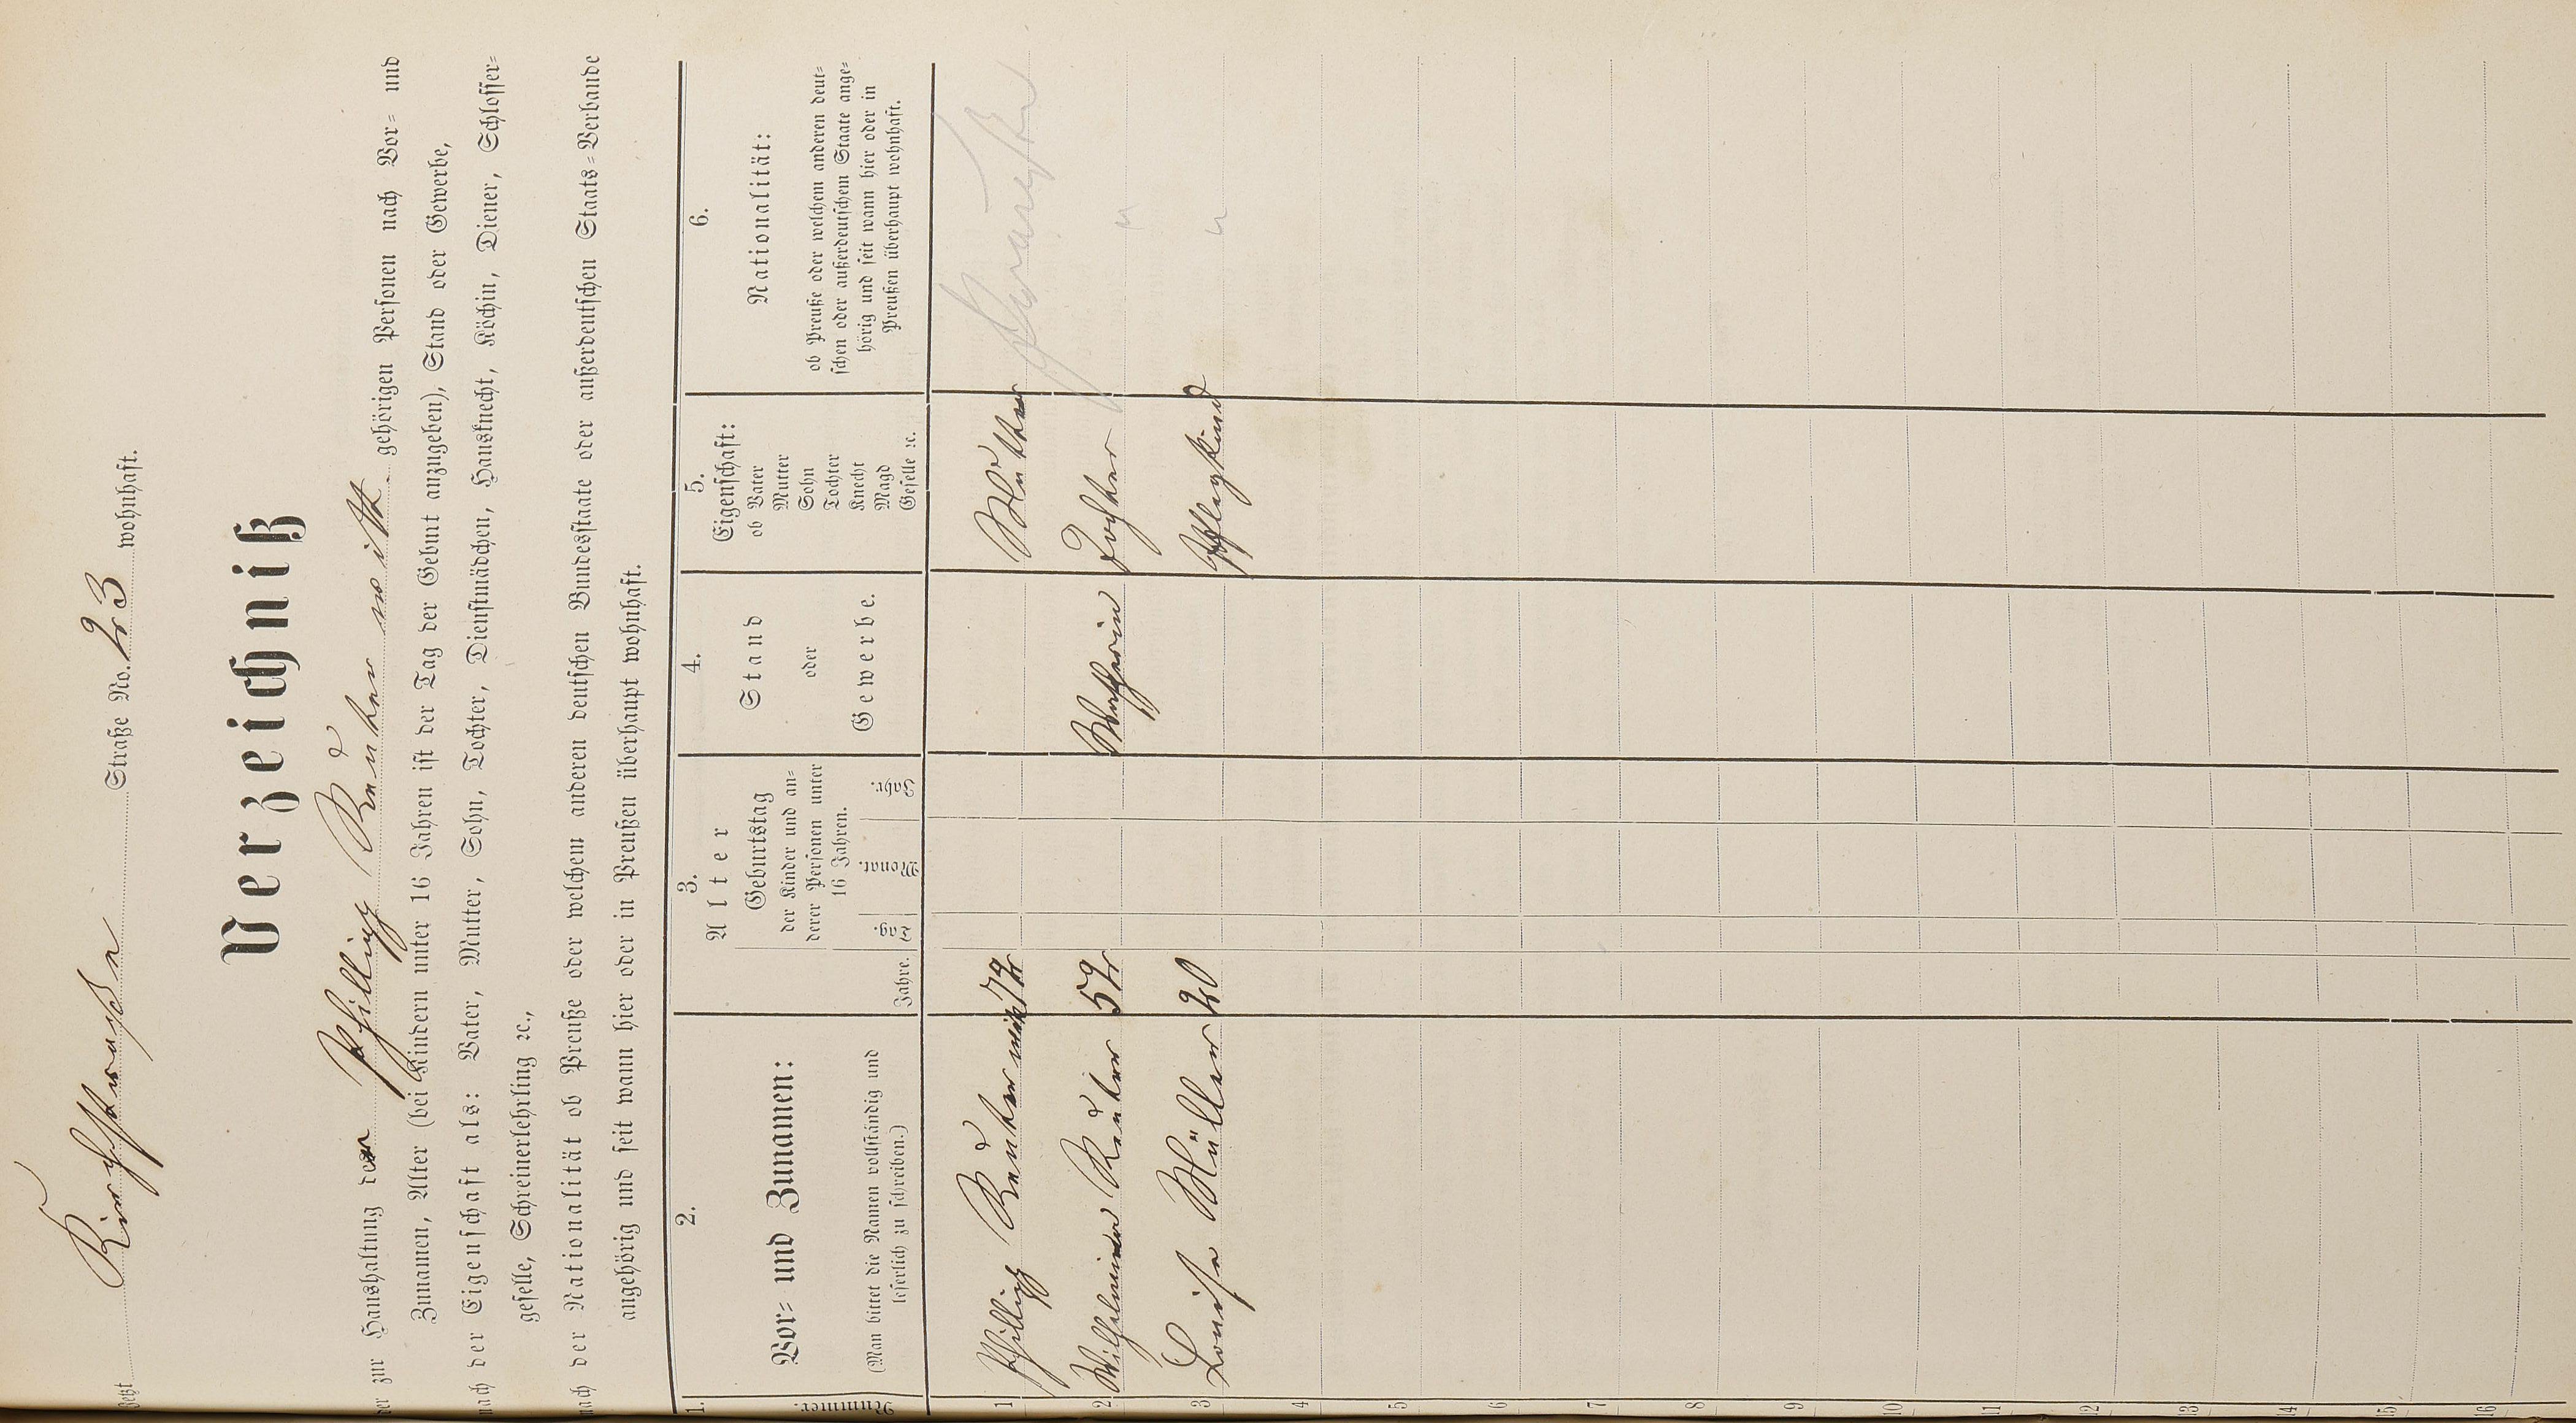 Jetzt Kirchstraße Straße No. 23 wohnhaft.
Verzeichniß
der zur Haushaltung der Philipp Reuter witt. gehörigen Personen nach Vor- und
Zunamen, Alter (bei Kindern unter 16 Jahren ist der Tag der Geburt anzugeben), Stand oder Gewerbe,
nach der Eigenschaft als: Vater, Mutter, Sohn, Tochter, Dienstmädchen, Hausknecht, Köchin, Diener, Schlosser-
geselle, Schreinerlehrling ꝛc.,
nach der Nationalität ob Preuße oder welchem anderen deutschen Bundesstaate oder außerdeutschen Staats-Verbande
angehörig und seit wann hier oder in Preußen überhaupt wohnhaft.
1. 2. 3. 4. 5. 6.
Nummer.
Vor- und Zunamen:
(Man bittet die Namen vollständig und
leserlich zu schreiben.)
Alter
Jahre.
Geburtstag
der Kinder und an-
derer Personen unter
16 Jahren.
Tag. Monat. Jahr.
Stand
oder
Gewerbe.
Eigenschaft:
ob Vater
Mutter
Sohn
Tochter
Knecht
Magd
Geselle ꝛc.
Nationalität:
ob Preuße oder welchem anderen deut-
schen oder außerdeutschem Staate ange-
hörig und seit wann hier oder in
Preußen überhaupt wohnhaft.
1 Philipp Reuter witt 72 Mutter
2 Wilhelmine Reuter 52 Wascherin Tochter "
3 Louise Müller 20 Pflegkind "
4
5
6
7
8
9
10
11
12
13
14
15
16